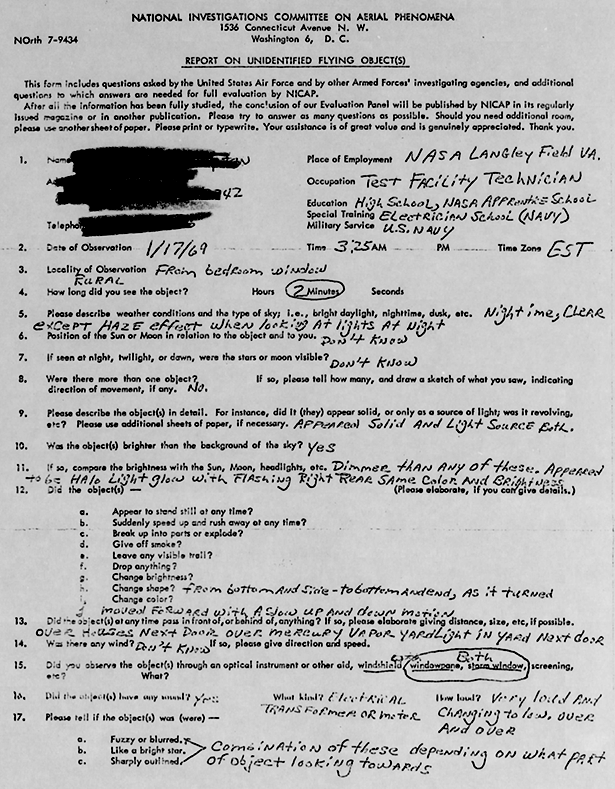 NATIONAL INVESTIGATIONS COMMITTEE ON AERIAL PHENOMENA
1536 Connecticut Avenue N. W.
NOrth 7-9434 Washington 6, D. C.
REPORT ON UNIDENTIFIED FLYING OBJECT(S)
This form includes questions asked by the United States Air Force and by other Armed Forces' investigating agencies, and additional
questions to which answers are needed for full evaluation by NICAP.
After all the information has been fully studied, the conclusion of our Evaluation Panel will be published by NICAP in its regularly
issued magazine or in another publication. Please try to answer as many questions as possible. Should you need additional room,
please use another sheet of paper. Please print or typewrite. Your assistance is of great value and is genuinely appreciated. Thank you.
1. Name Place of Employment NASA LANGLEY Field VA.
Occupation TEST FACILITY TECHNICIAN
242 Education High School, NASA APPRENTICE School
Special Training ELECTRICIAN School (NAVY)
Telephone Military Service U.S. NAVY
2. Date of Observation 1/17/69 Time 3:25 AM PM Time Zone EST
3. Locality of Observation From bedroom window
RURAL
4. How long did you see the object? Hours 2 Minutes Seconds
5. Please describe weather conditions and the type of sky; i.e., bright daylight, nighttime, dusk, etc. Nightime, CLEAR
EXCEPT HAZE effect when looking AT lights AT Night
6. Position of the Sun or Moon in relation to the object and to you. DON'T KNOW
7. If seen at night, twilight, or dawn, were the stars or moon visible? DON'T KNOW
8. Were there more than one object? If so, please tell how many, and draw a sketch of what you saw, indicating
direction of movement, if any. NO.
9. Please describe the object(s) in detail. For instance, did it (they) appear solid, or only as a source of light; was it revolving,
etc? Please use additional sheets of paper, if necessary. APPEARED Solid AND Light SOURCE Both.
10. Was the object(s) brighter than the background of the sky? Yes
11. If so, compare the brightness with the Sun, Moon, headlights, etc. Dimmer THAN ANY OF THESE. APPEARED
to be HALO Light glow with FLASHING Right REAR SAME COLOR AND BRIGHTNESS
12. Did the object(s) — (Please elaborate, if you can give details.)
a. Appear to stand still at any time?
b. Suddenly speed up and rush away at any time?
c. Break up into parts or explode?
d. Give off smoke?
e. Leave any visible trail?
f. Drop anything?
g. Change brightness?
h. Change shape? From bottom AND side - to bottom AND end, AS it turned
i. Change color?
moved FORWARD WITH A SLOW UP AND DOWN motion
13. Did the object(s) at any time pass in front of, or behind of, anything? If so, please elaborate giving distance, size, etc, if possible.
OVER HOUSES NEXT DOOR OVER MERCURY VAPOR YARDLIGHT IN YARD NEXT DOOR
14. Was there any wind? Don't KNOW If so, please give direction and speed.
Both
15. Did you observe the object(s) through an optical instrument or other aid, windshield, windowpane, storm window, screening,
etc? What?
16. Did the object(s) have any sound? Yes What kind? ELECTRICAL How loud? Very loud AND
TRANSFORMER OR MOTOR CHANGING to low, OVER
AND OVER
17. Please tell if the object(s) was (were) —
a. Fuzzy or blurred.
b. Like a bright star. COMBINATION OF THESE depending ON WHAT PART
c. Sharply outlined. OF object looking towards